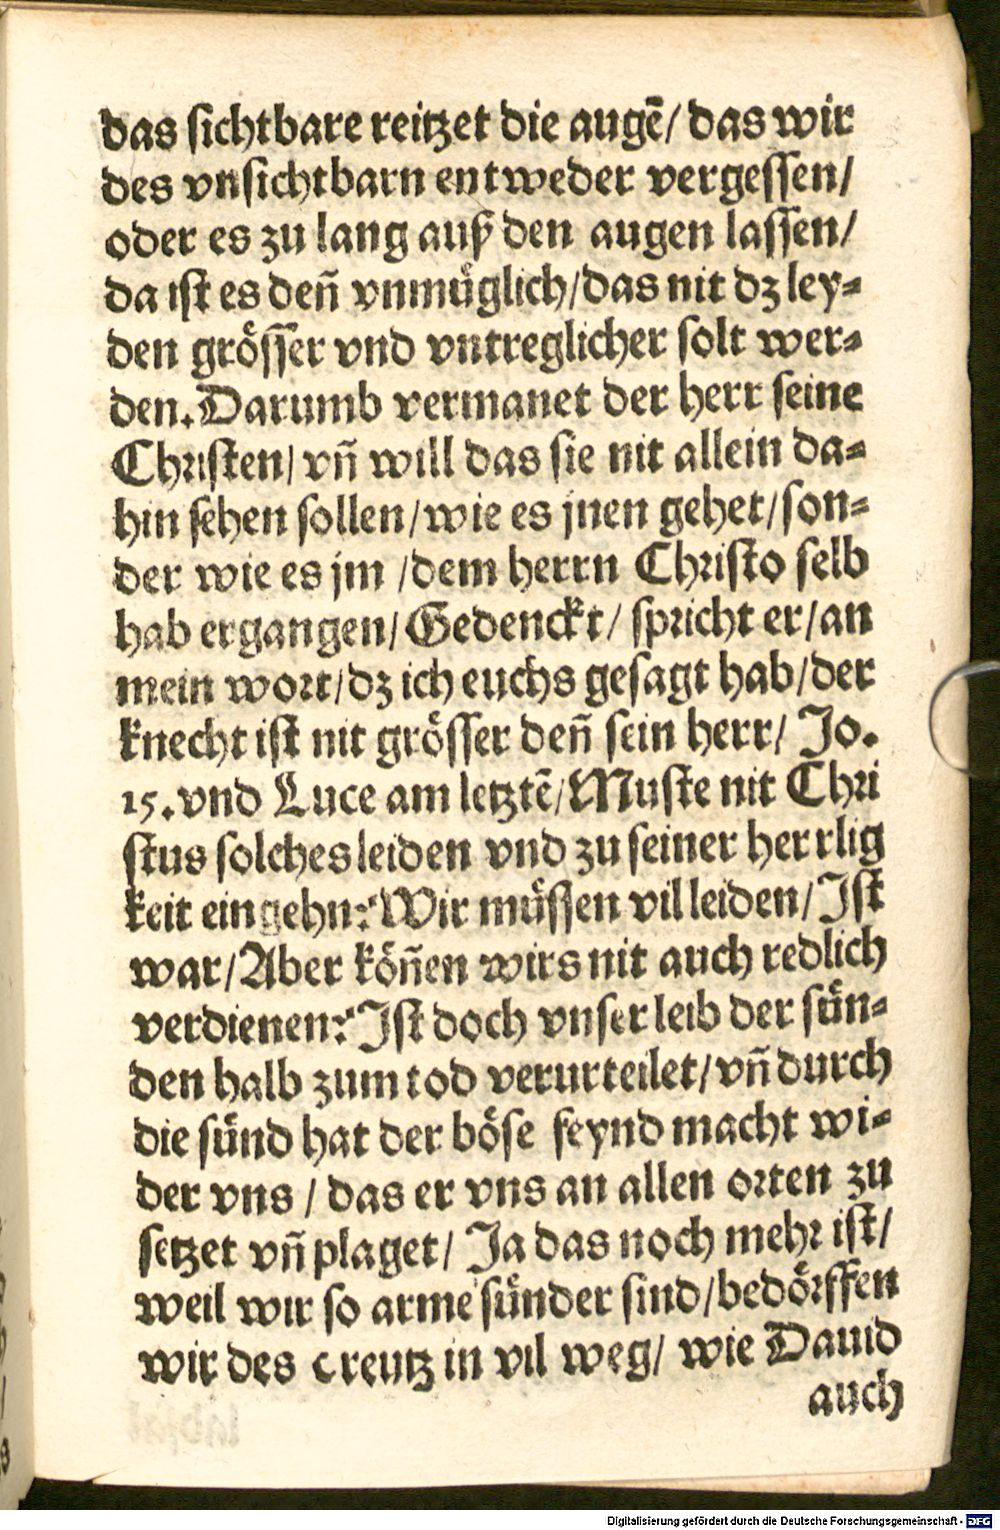 das sichtbare reitzet die augē/ das wir
des vnsichtbarn entweder vergessen/
oder es zu lang auß den augen lassen/
da ist es deñ vnmüglich/das nit dz ley-
den grösser vnd vntreglicher solt wer-
den. Darumb vermanet der herr seine
Christen/ vñ will das sie nit allein da-
hin sehen sollen/wie es jnen gehet/son-
der wie es jm /dem herrn Christo selb
hab ergangen/ Gedenckt/ spricht er/an
mein wort/dz ich euchs gesagt hab/der
knecht ist nit grösser deñ sein herr/ Jo.
15. vnd Luce am letztē/Muste nit Chri
stus solches leiden vnd zu seiner herrlig
keit eingehn? Wir müssen vil leiden/ Ist
war/Aber köñen wirs nit auch redlich
verdienen? Ist doch vnser leib der sün-
den halb zum tod verurteilet/vñ durch
die sünd hat der böse feynd macht wi-
der vns / das er vns an allen orten zu
setzet vñ plaget/ Ja das noch mehr ist/
weil wir so arme sünder sind/bedörffen
wir des creutz in vil weg/ wie Dauid
auch
Digitalisierung gefördert durch die Deutsche Forschungsgemeinschaft - DFG